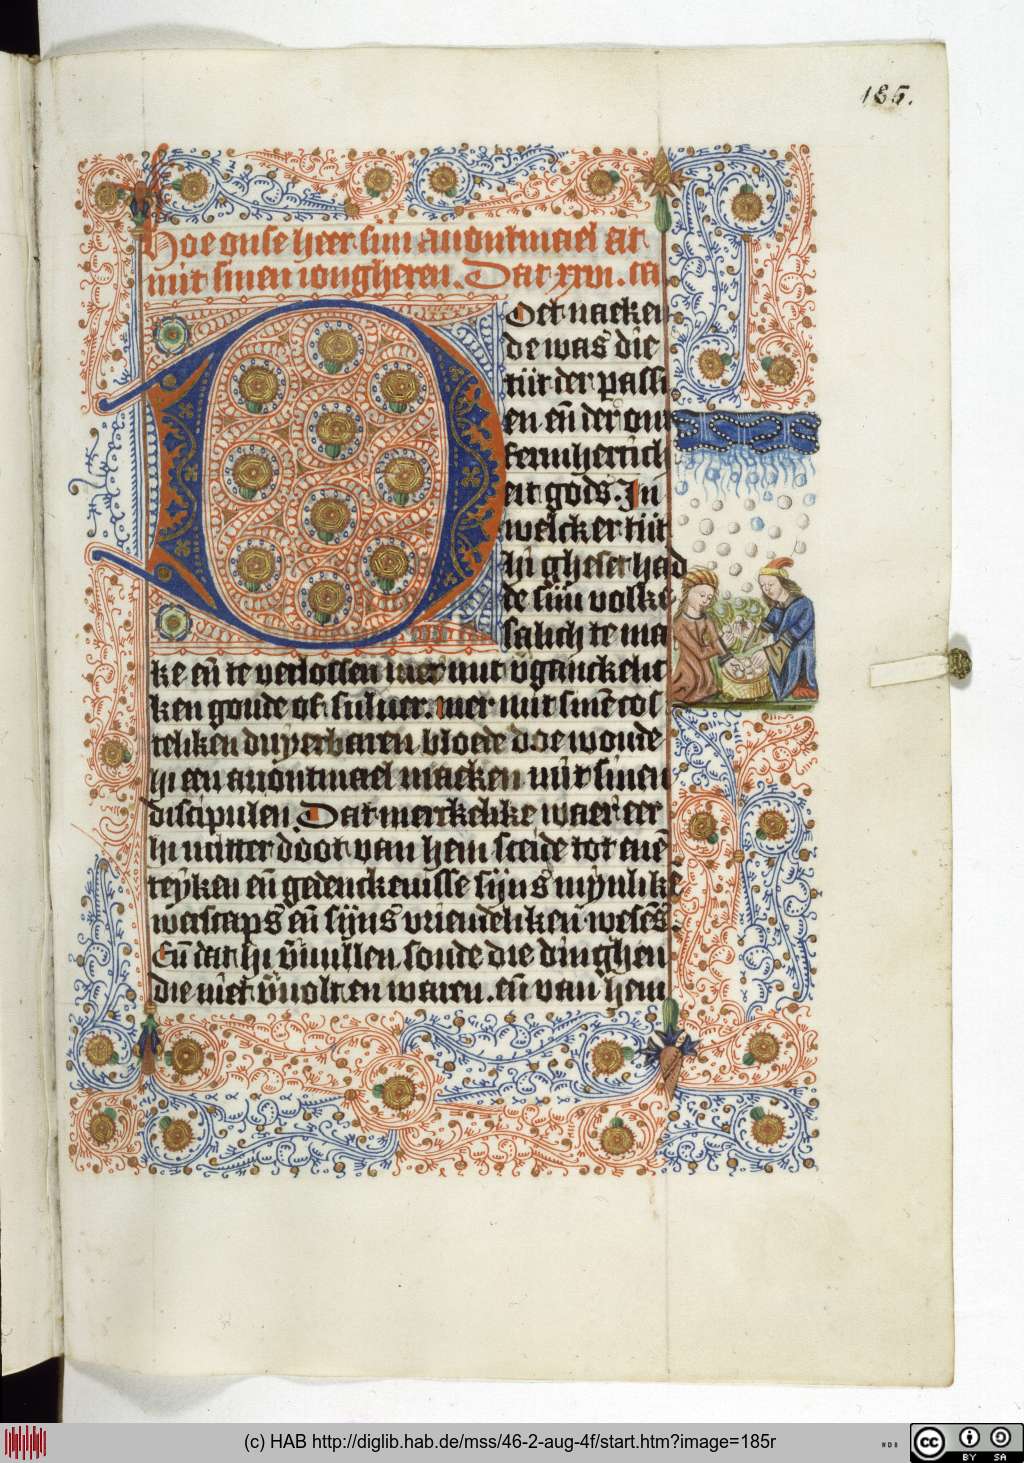 185.
Hoe onse heer sijn auontmael at
mit sinen iongheren. Dat xxvi. ca
Oet naeken
de was die
tijt der passi
en en̄ der ont
fermhertich
eit gods. In
welcker tijt
hi̅ gheset had
de sijn volke
salich te ma
ke en̄ te verlossen niet mit v̄ganckelic
ken goude of siluer. mer mit sinē cos
teliken duyerbaren bloede doe woude
hi een auontmael maeken mit sinen
discipulen. Dat merckelike waer eer
hi mitter doot van hem sceide tot enē
teyken en̄ gedenckenisse sijns mynlikē
en̄ sijns vriendeliken wesēs.
En̄ dat hi v̄uullen soude die dinghen
die niet v̄uolt en waren. en̄ van hem
(c) HAB http://diglib.hab.de/mss/46-2-aug-4f/start.htm?image=185r
WDB
cc
BY SA